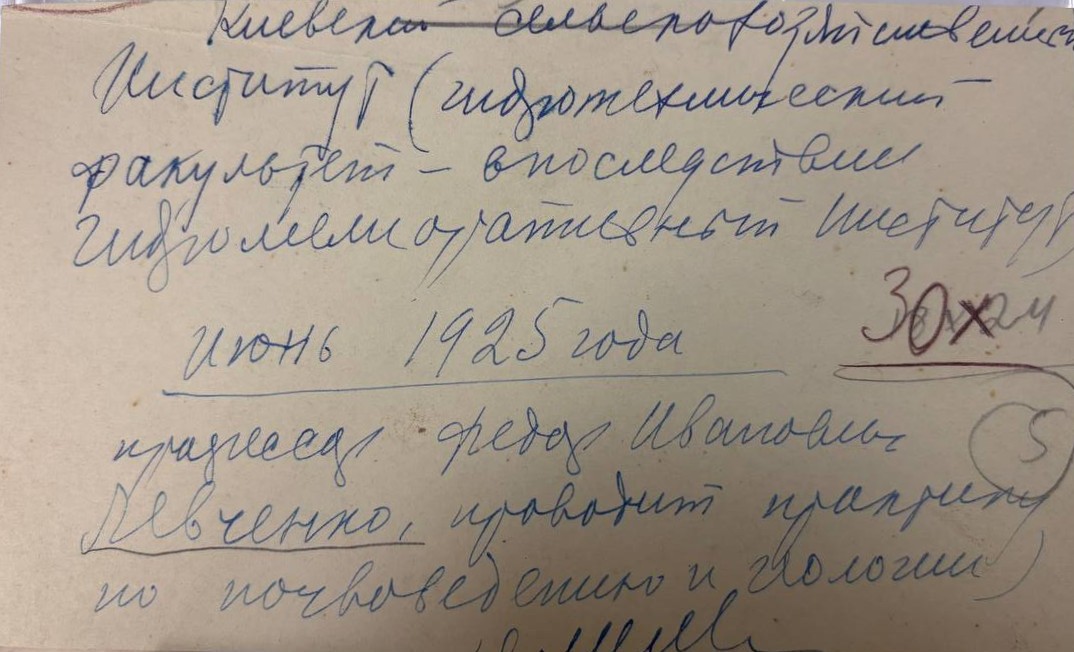 Киевский сельскохозяйственный
Институт (гидротехнический
факультет – впоследствии
Гидромелиоративный Институт)
30х24
июнь 1925 года
5
профессор Федор Иванович
Левченко, проводит практику
по почвоведению и геологии)